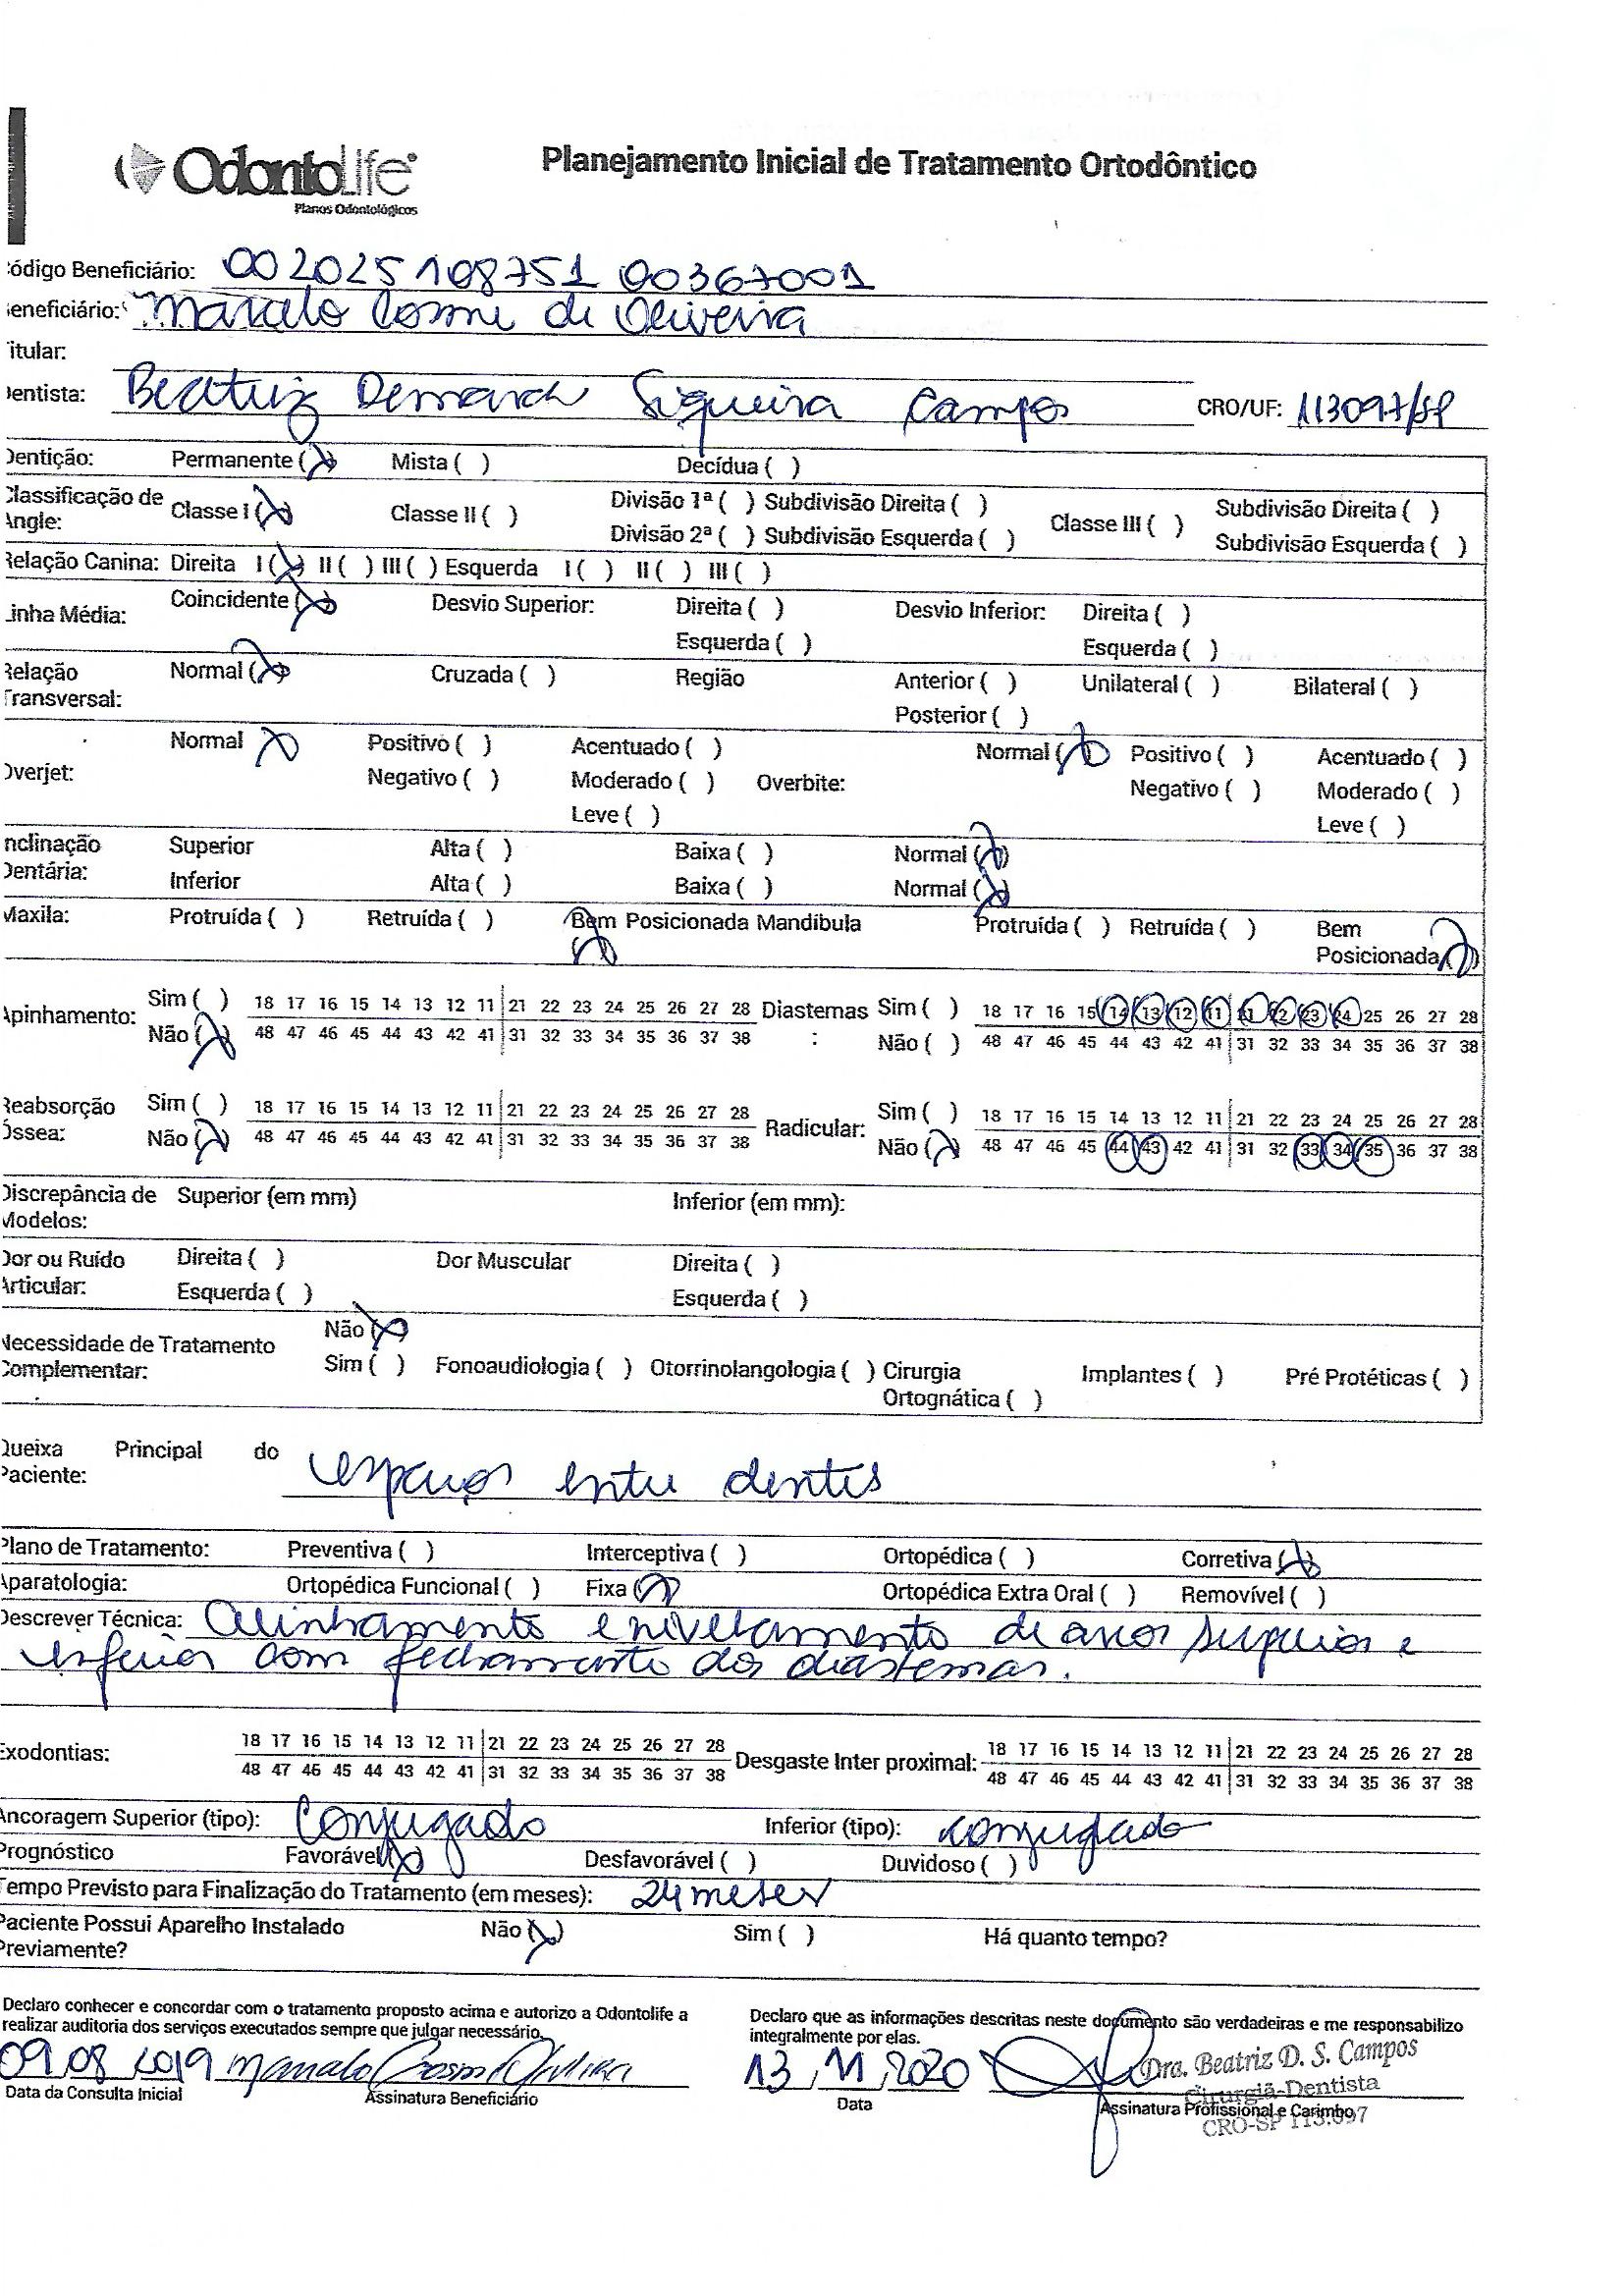 OdontoLife
Planos Odontológicos
Planejamento Inicial de Tratamento Ortodôntico
ódigo Beneficiário: 002025108751 00367001
eneficiário: Marcelo Cosmi de Oliveira
itular:
entista: Beatriz Demarch Siqueira Campos CRO/UF: 113097/SP
Dentição: Permanente (X) Mista ( ) Decídua ( )
Classificação de Angle: Classe I (X) Classe II ( ) Divisão 1ª ( ) Subdivisão Direita ( ) Classe III ( ) Subdivisão Direita ( )
Divisão 2ª ( ) Subdivisão Esquerda ( ) Subdivisão Esquerda ( )
Relação Canina: Direita I (X) II ( ) III ( ) Esquerda I ( ) II ( ) III ( )
Linha Média: Coincidente (X) Desvio Superior: Direita ( ) Desvio Inferior: Direita ( )
Esquerda ( ) Esquerda ( )
Relação Transversal: Normal (X) Cruzada ( ) Região Anterior ( ) Unilateral ( ) Bilateral ( )
Posterior ( )
Overjet: Normal X Positivo ( ) Acentuado ( ) Overbite: Normal (X) Positivo ( ) Acentuado ( )
Negativo ( ) Moderado ( ) Negativo ( ) Moderado ( )
Leve ( ) Leve ( )
Inclinação Dentária: Superior Alta ( ) Baixa ( ) Normal (X)
Inferior Alta ( ) Baixa ( ) Normal (X)
Maxila: Protruída ( ) Retruída ( ) Bem Posicionada (X) Mandíbula Protruída ( ) Retruída ( ) Bem Posicionada (X)
Apinhamento: Sim ( ) 18 17 16 15 14 13 12 11 21 22 23 24 25 26 27 28 Diastemas: Sim ( ) 18 17 16 15 14 13 12 11 21 22 23 24 25 26 27 28
Não (X) 48 47 46 45 44 43 42 41 31 32 33 34 35 36 37 38 Não ( ) 48 47 46 45 44 43 42 41 31 32 33 34 35 36 37 38
Reabsorção Óssea: Sim ( ) 18 17 16 15 14 13 12 11 21 22 23 24 25 26 27 28 Radicular: Sim ( ) 18 17 16 15 14 13 12 11 21 22 23 24 25 26 27 28
Não (X) 48 47 46 45 44 43 42 41 31 32 33 34 35 36 37 38 Não (X) 48 47 46 45 44 43 42 41 31 32 33 34 35 36 37 38
Discrepância de Modelos: Superior (em mm) Inferior (em mm):
Dor ou Ruído Articular: Direita ( ) Dor Muscular Direita ( )
Esquerda ( ) Esquerda ( )
Necessidade de Tratamento Complementar: Não (X)
Sim ( ) Fonoaudiologia ( ) Otorrinolangologia ( ) Cirurgia Ortognática ( ) Implantes ( ) Pré Protéticas ( )
Queixa Principal do Paciente: espaços entre dentes
Plano de Tratamento: Preventiva ( ) Interceptiva ( ) Ortopédica ( ) Corretiva (X)
Aparatologia: Ortopédica Funcional ( ) Fixa (X) Ortopédica Extra Oral ( ) Removível ( )
Descrever Técnica: Alinhamento e nivelamento de arcos superior e
inferior com fechamento dos diastemas.
Exodontias: 18 17 16 15 14 13 12 11 21 22 23 24 25 26 27 28 Desgaste Inter proximal: 18 17 16 15 14 13 12 11 21 22 23 24 25 26 27 28
48 47 46 45 44 43 42 41 31 32 33 34 35 36 37 38 48 47 46 45 44 43 42 41 31 32 33 34 35 36 37 38
Ancoragem Superior (tipo): Conjugado Inferior (tipo): conjugado
Prognóstico Favorável (X) Desfavorável ( ) Duvidoso ( )
Tempo Previsto para Finalização do Tratamento (em meses): 24 meses
Paciente Possui Aparelho Instalado Previamente? Não (X) Sim ( ) Há quanto tempo?
Declaro conhecer e concordar com o tratamento proposto acima e autorizo a Odontolife a
realizar auditoria dos serviços executados sempre que julgar necessário.
09 08 2019 Marcelo Cosmi Oliveira
Data da Consulta Inicial Assinatura Beneficiário
Declaro que as informações descritas neste documento são verdadeiras e me responsabilizo
integralmente por elas.
13, 11, 2020 Dra. Beatriz D. S. Campos
Cirurgiã-Dentista
Data Assinatura Profissional e Carimbo
CRO-SP 113.097